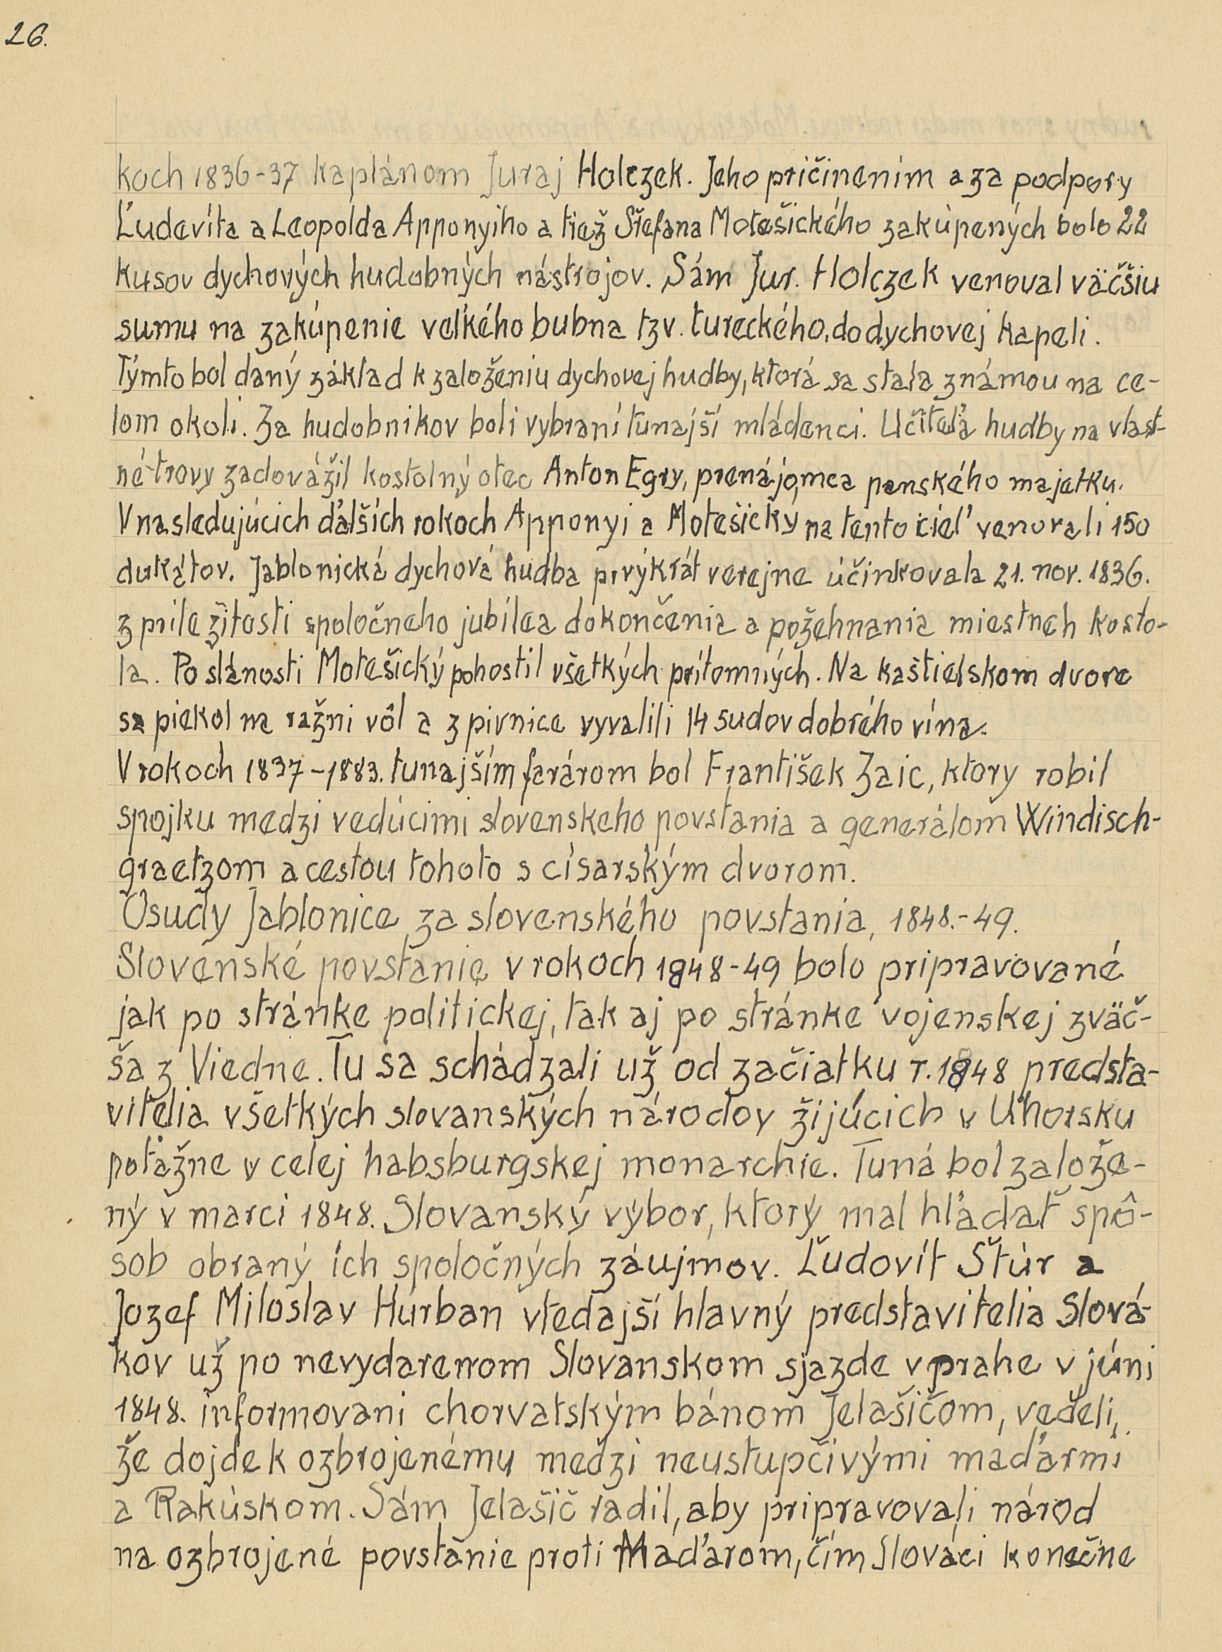 26.
koch 1836-37 kaplánom Juraj Holczek. Jeho pričinením a za podpory
Ľudevíta a Leopolda Apponyiho a tiež Štefana Motešického zakúpených bolo 22
kusov dychových hudobných nástrojov. Sám Jur. Holczek venoval väčšiu
sumu na zakúpenie veľkého bubna tzv. tureckého, do dychovej kapeli.
Týmto bol daný základ k založeniu dychovej hudby, ktorá sa stala známou na ce-
lom okoli. Za hudobnikov boli vybraní tunajší mládenci. Učiteľa hudby na vlast-
né trovy zadovážil kostolný otec Anton Egry, prenájomca panského majetku.
V nasledujúcich ďalších rokoch Apponyi a Motešický na tento cieľ venovali 150
dukátov. Jablonická dychová hudba prvýkrát verejne účinkovala 21. nov. 1836.
z priležitosti spoločneho jubilea dokončenia a požehnania miestneh kosto-
la. Po slánosti Motešický pohostil všetkých prítomných. Na kaštielskom dvore
sa piekol na ražni vôl a z pivnice vyvalili 14 sudov dobrého vína.
V rokoch 1837-1883. tunajším farárom bol František Zaic, ktory robil
spojku medzi vedúcimi slovenskeho povstania a generálom Windisch-
graetzom a cestou tohoto s císarským dvorom.
Osudy Jablonice za slovenského povstania, 1848.-49.
Slovenské povstanie v rokoch 1848-49 bolo pripravované
jak po stránke politickej, tak aj po stránke vojenskej zväč-
ša z Viedne. Tu sa schádzali už od začiatku r. 1848 predsta-
vitelia všetkých slovanských národov žijúcich v Uhorsku
poťažne v celej habsburgskej monarchie. Tuná bol založe-
ný v marci 1848. Slovanský výbor, ktorý mal hľadať spô-
sob obraný ích spoločných záujmov. Ľudovít Štúr a
Jozef Miloslav Húrban vtedajší hlavný predstavitelia Slová-
kov už po nevydarenom Slovanskom sjazde v prahe v júni
1848. informovani chorvatským bánom Jelašičom, vedeli,
že dojde k ozbrojenému medzi neustupčivými maďarmi
a Rakúskom. Sám Jelašič radil, aby pripravovali národ
na ozbrojené povstanie proti Maďarom, čím Slováci konečne